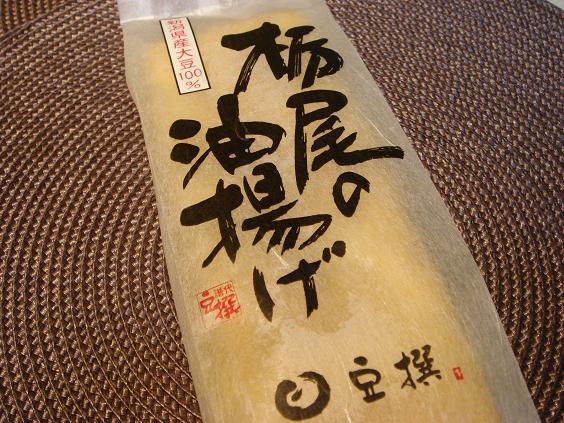 新潟県産大豆100%
栃尾の
油揚げ
豆撰